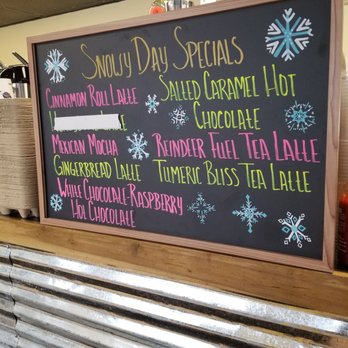 Snowy Day Specials
Cinnamon Roll Latte
Mexican Mocha
Gingerbread Latte
White Chocolate-Raspberry
Hot Chocolate
Salted Caramel Hot
Chocolate
Reindeer Fuel Tea Latte
Tumeric Bliss Tea Latte